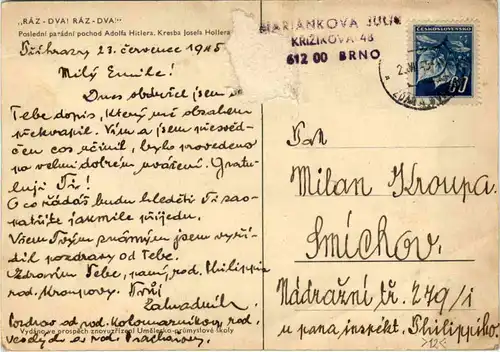 „RÁZ - DVA! RÁZ - DVA!“
Poslední parádní pochod Adolfa Hitlera. Kresba Josefa Hollera
Příhrazy 23. července 1945
Milý Emile!
Dnes obdržel jsem od
Tebe dopis, který mě obsahem
překvapil. Vím a jsem přesvěd-
čen cos učinil, bylo provedeno
po velmi dobrém uvážení. Gratu-
luji Ti!
O co žádáš budu hleděti Ti zao-
patřiti jakmile přijedu.
Všem Tvým známým jsem vyří-
dil pozdravy od Tebe.
Zdravím Tebe, paní, rod. Philippiko
rod. Kroupovy. Tvůj
Zahradník
Pozdrav od rod. Kolomazníkovy, rod.
a rod.
Vydáno ve prospěch znovuzřízení Umělecko-průmyslové školy
MARIÁNKOVÁ JULIE
KŘIŽÍKOVA 48
612 00 BRNO
ČESKOSLOVENSKO
60
Pan
Milan Kroupa
Smíchov.
Nádražní tř. 279/I
u pana inspekt. Philippiko.